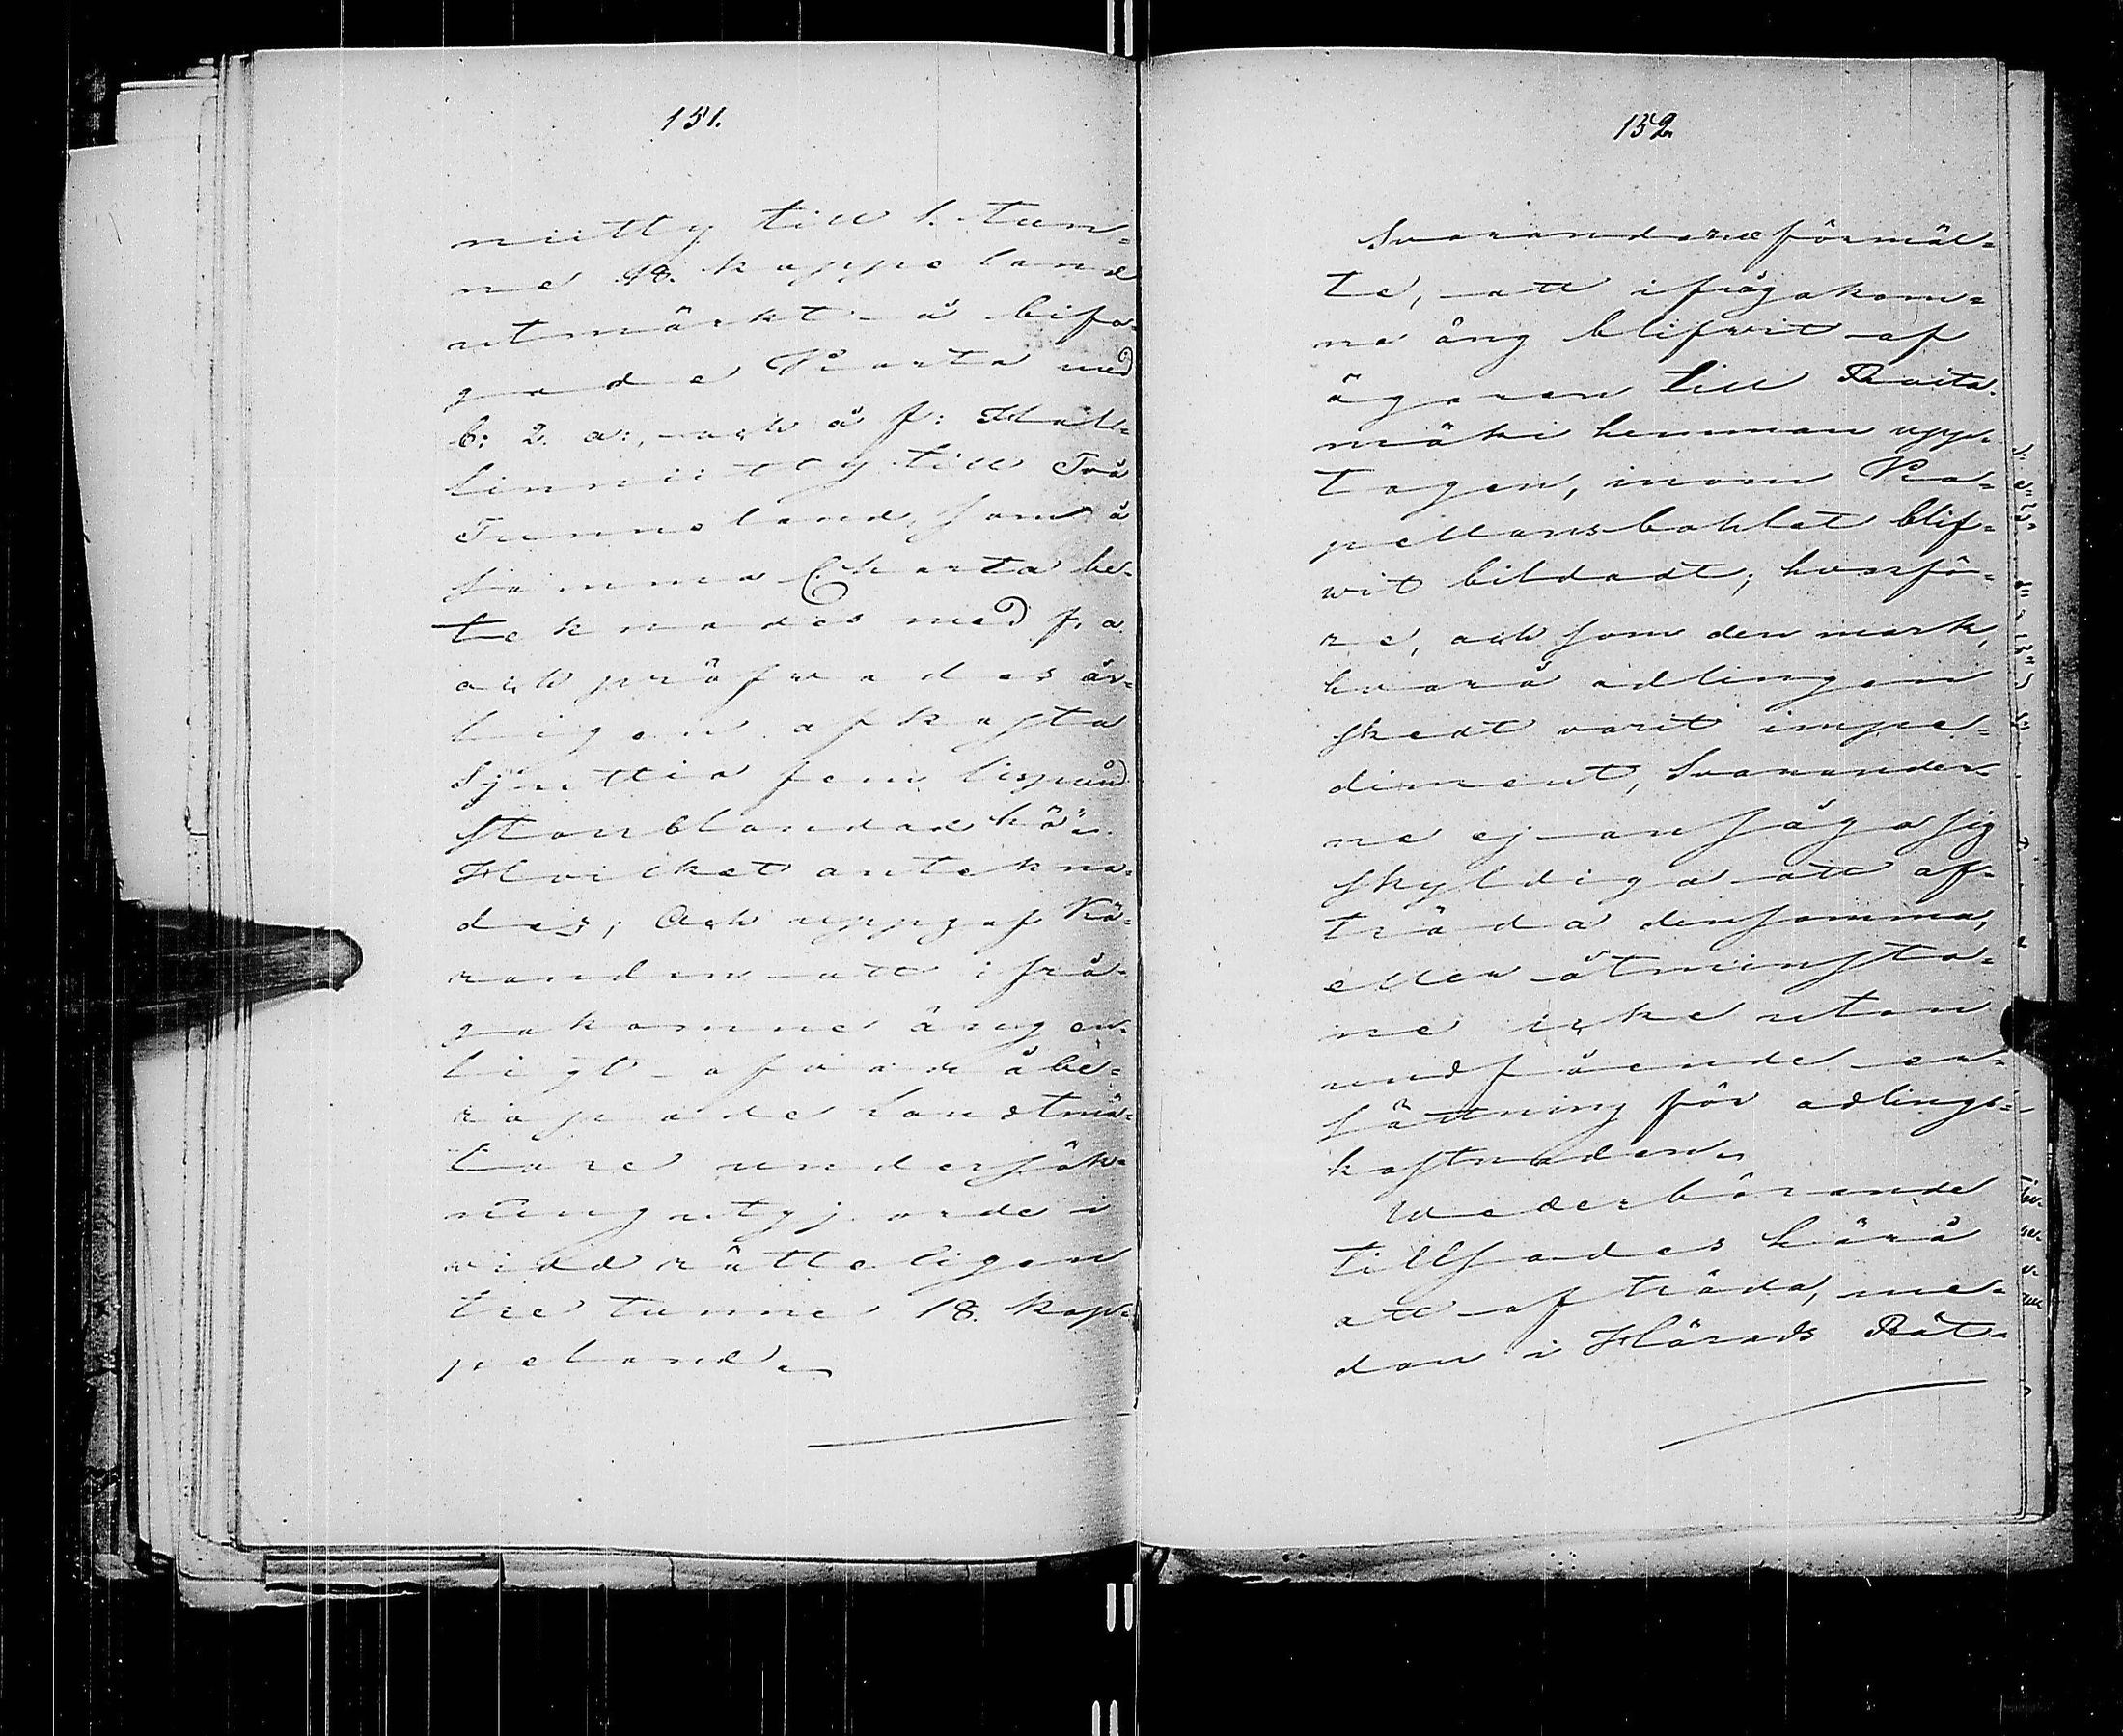 151.
niitty till 1. tun=
ne 18. kappeland
utmärkt å bifo=
gade Karta med
b: 2. a:, och å f: Hal=
linniitty till Två
Tunneland, som å
samma Charta be=
teknades med f. a.
och pröfvades år=
ligen afkasta
Sjuttio fem lispund
starrblandad hö.
Hvilket antekna=
des; Och uppgaf Kä=
randen att ifrå=
gakomne äng en=
ligt ofvan åbe=
ropade landtmä=
tare undersök=
ning utgjorde i
vidd rätteligen
tre tunne 18. kap=
peland.
152
Svarandene förmäl=
te, att ifrågakom=
na äng blifvit af
ägaren till Ruita=
mäki hemman upp=
tagen, innan Ka=
pellansbohlet blif=
vit bildadt; hvarfö=
re, och som den mark,
hvarå odlingen
skedt varit impe=
diment, Svarander=
ne ej ansågo sig
skyldiga att af=
träda densamma,
eller åtminsto=
ne icke utan
undfående er=
sättning för odlings=
kostnaden.
Wederbörande
tillsades härå
att afträda, me=
dan i Härads Rät=